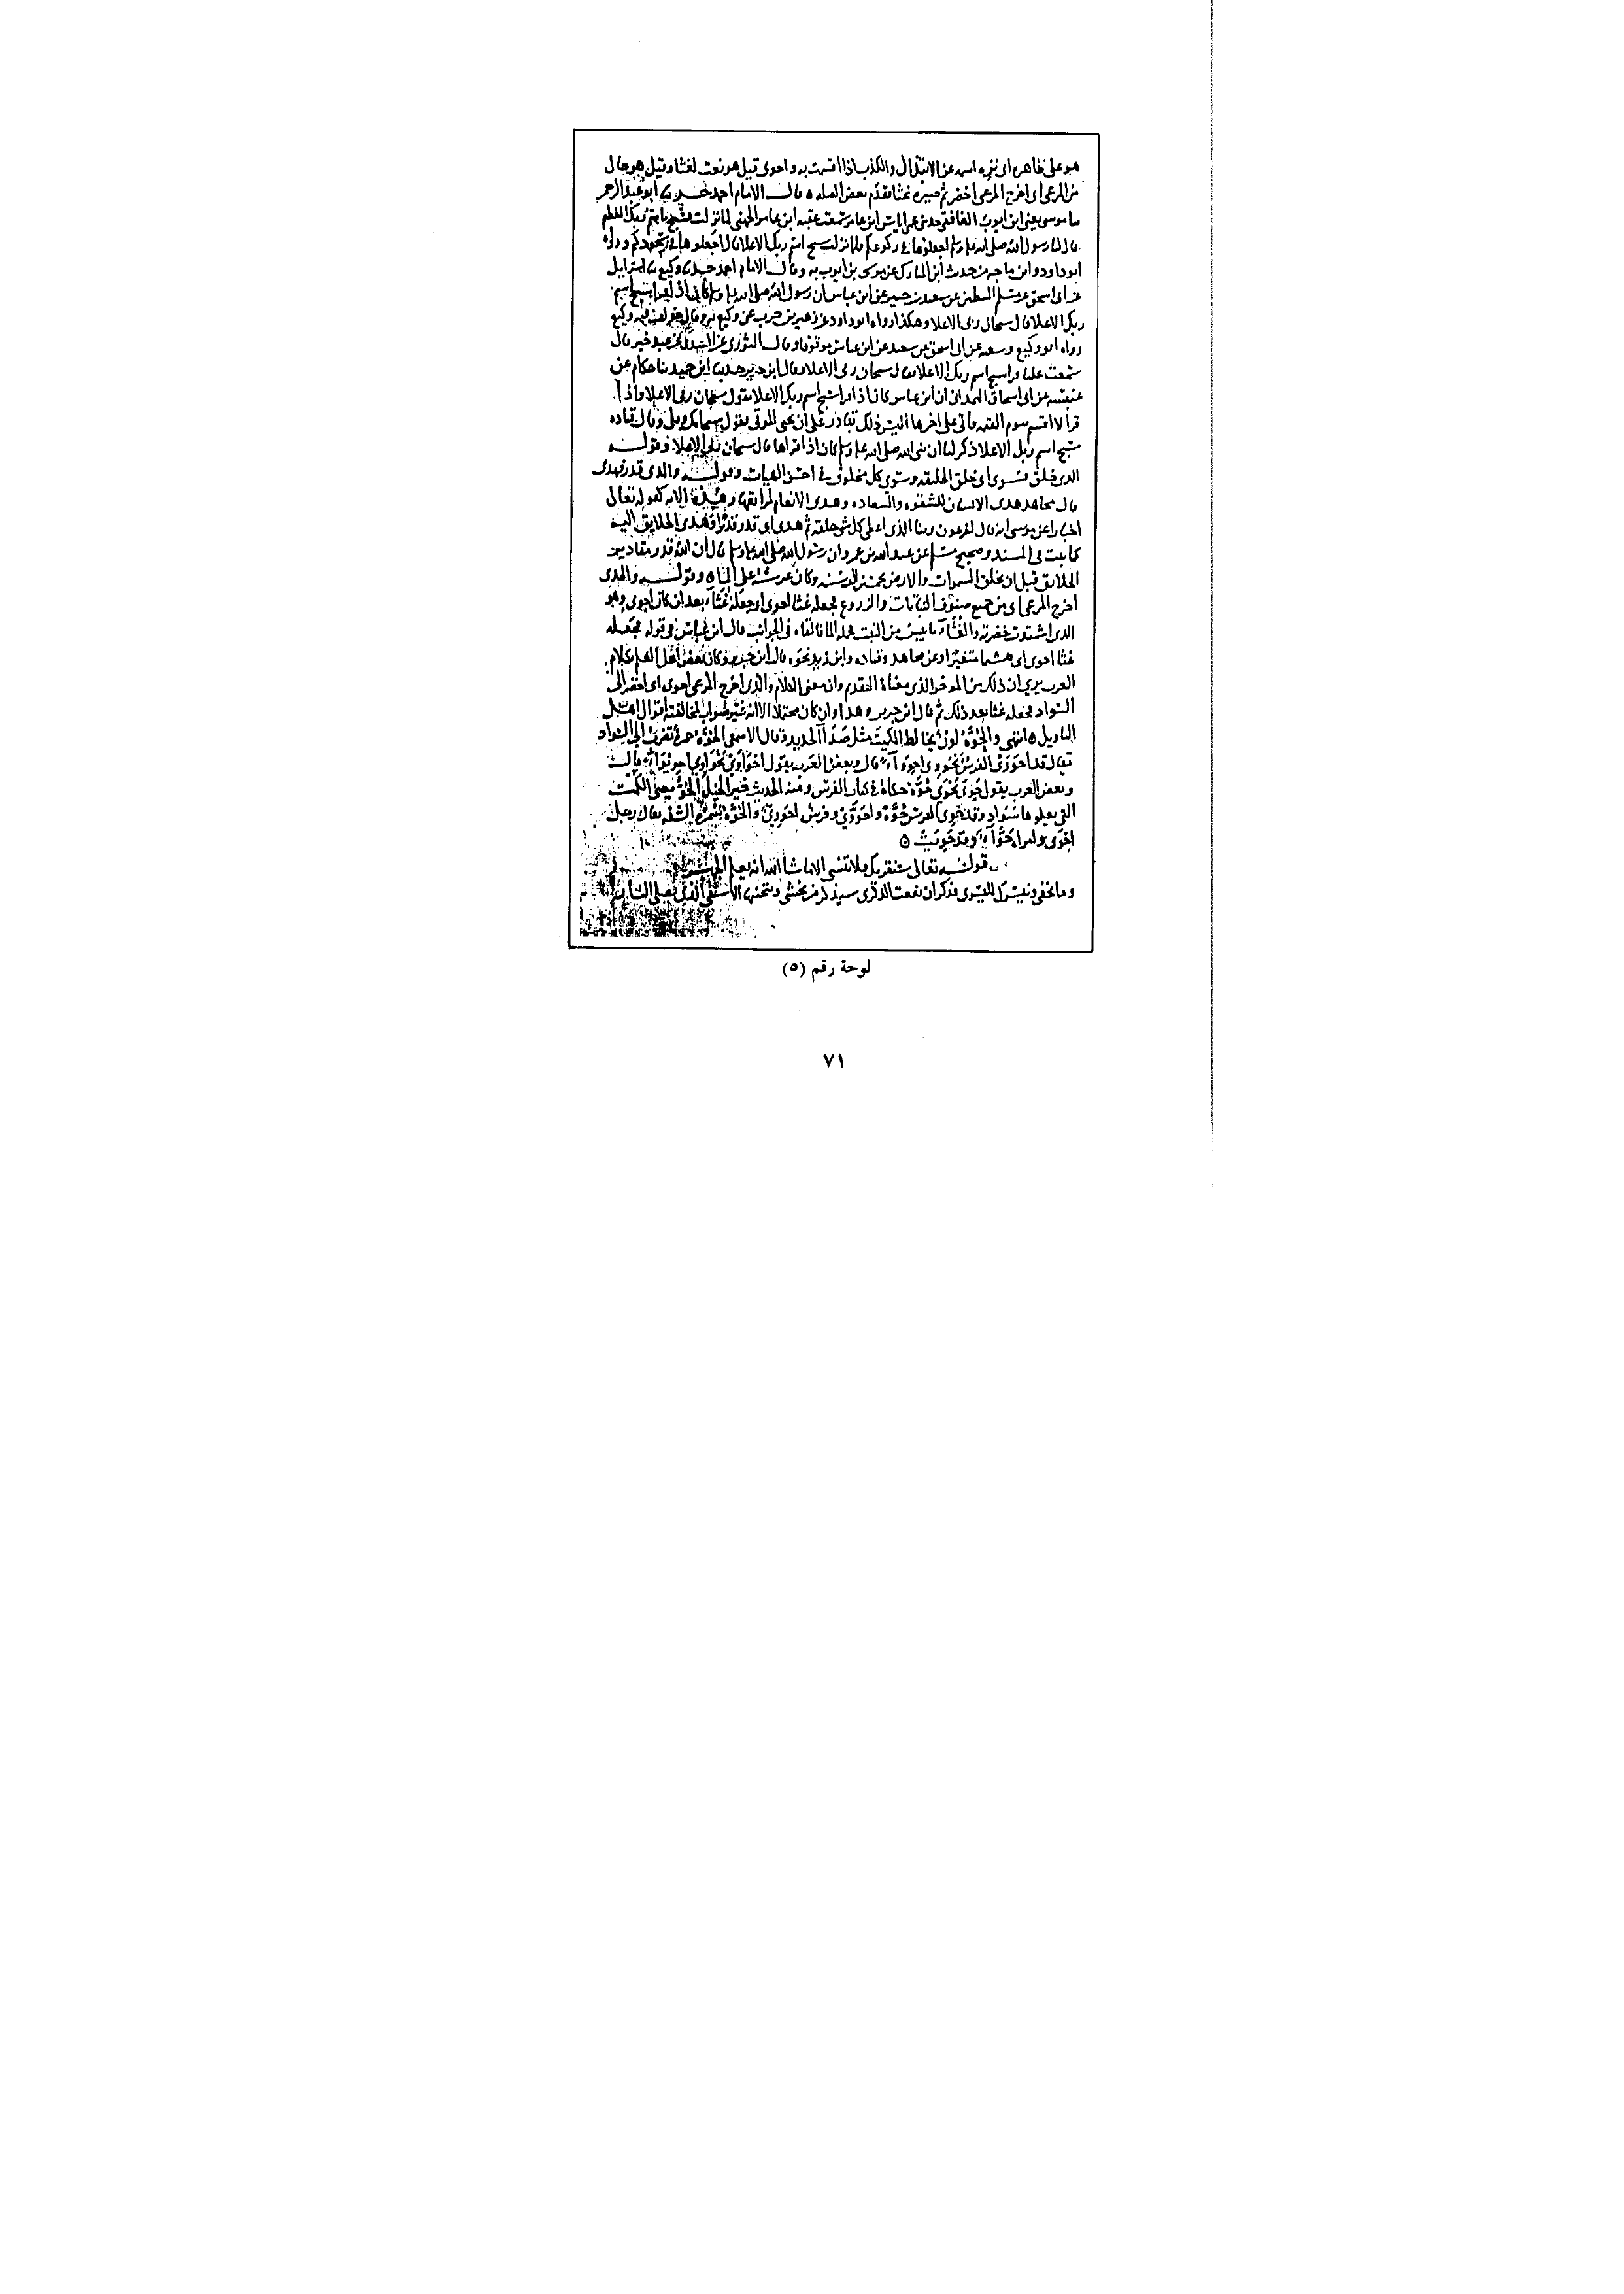 هو على ظاهره اى نزه اسمه عن الابتذال والكذب اذا اقسمت به واحوى قيل هو نعت لغثا وقيل هو حال
من المرعى اى اخرج المرعى اخضر ثم صيره غثا فقدم بعض الصله ٥ قال الامام احمد حدثنا ابو عبد الرحمن
سا موسى يعنى ابن ايوب الغافقى حدثنى عمى اياس ابن عامر سمعت عقبه ابن عامر الجهنى لما نزلت فسبح باسم ربك العظيم
قال لنا رسول الله صلى الله عليه وسلم اجعلوها فى ركوعكم فلما نزلت سبح اسم ربك الاعلا قال اجعلوها فى سجودكم ورواه
ابو داود وابن ماجه من حديث ابن المبارك عن موسى بن ايوب به وقال الامام احمد حدثنا وكيع نا اسرايل
عن ابى اسحق عن مسلم البطين عن سعيد بن جبير عن ابن عباس ان رسول الله صلى الله عليه وسلم كان اذا قرا سبح اسم
ربك الاعلا قال سبحان ربى الاعلا وهكذا رواه ابو داود عن زهير بن حرب عن وكيع به وقال خولف فيه وكيع
رواه ابو وكيع وشعبه عن ابى اسحق عن سعيد عن ابن عباس موقوفا وقال الثورى عن السدى عن عبد خير قال
سمعت عليا قرا سبح اسم ربك الاعلا فقال سبحان ربى الاعلا وقال ابن جرير حدثنا ابن حميد نا حكام عن
عنبسه عن ابى اسحاق الهمدانى ان ابن عباس كان اذا قرا سبح اسم ربك الاعلا يقول سبحان ربى الاعلا واذا
قرا لا اقسم بيوم القيمه فاتى على اخرها اليس ذلك بقادر على ان يحى الموتى يقول سبحانك وبلى وقال قتاده
سبح اسم ربك الاعلا ذكر لنا ان نبى الله صلى الله عليه وسلم كان اذا قراها قال سبحان ربى الاعلا وقوله
الذى خلق فسوى اى خلق الخليقه وسوى كل مخلوق فى احسن الهيات وقوله والذى قدر فهدى
قال مجاهد هدى الانسان للشقوه والسعاده وهدى الانعام لمراتعها وهذه الايه كقوله تعالى
اخبارا عن موسى انه قال لفرعون ربنا الذى اعطى كل شى خلقه ثم هدى اى قدر قدرا وهدى الخلايق اليه
كما ثبت فى المسند وصحيح مسلم عن عبد الله بن عمرو ان رسول الله صلى الله عليه وسلم قال ان الله قدر مقادير
الخلايق قبل ان يخلق السموات والارض بخمسين الف سنه وكان عرشه على الماء ٥ وقوله والذى
اخرج المرعى اى من جميع صنوف النباتات والزروع فجعله غثا احوى اى جعله غثآء بعد ان كان احوى وهو
الذى اشتدت خضرته والغثآء ما يبس من النبت فحمله الما فالقاه فى الجوانب قال ابن عباس فى قوله فجعله
غثا احوى اى هشيما متغيرا وعن مجاهد وقتاده وابن زيد نحوه قال ابن جرير وكان بعض اهل العلم بكلام
العرب يرى ان ذلك من الموخر الذى معناه التقديم وان معنى الكلام والذى اخرج المرعى احوى اى اخضر الى
السواد فجعله غثا بعد ذلك ثم قال ابن جرير وهذا وان كان محتملا الا انه غير صواب لمخالفته اقوال اهل
التاويل ٥ انتهى والحُوَّة لون يخالط الكمتة مثل صدأ الحديد قال الاصمعى الحوة حمرة تضرب الى السواد
يقال قد احووى الفرس يحووى احووآء قال وبعض العرب يقول احواوى يحواوى احويوآء قال
وبعض العرب يقول حَوِىَ يَحْوَى حُوَّة حكاه فى كتاب الفرس ومنه الحديث خير الخيل الحُوّ يعنى الكمت
التى يعلوها سواد وقد حوى الفرس حُوَّة واحووى وفرس احووى والحُوّة سُمرة الشفه يقال رجل
احوى وامراه حَوَّآء وقد حَوِيَتْ ٥
قوله تعالى سنقريك فلا تنسى الا ما شا الله انه يعلم الجهر
وما يخفى ونيسرك لليسرى فذكر ان نفعت الذكرى سيذكر من يخشى ويتجنبها الاشقى الذى يصلى النار
لوحة رقم (٥)
٧١